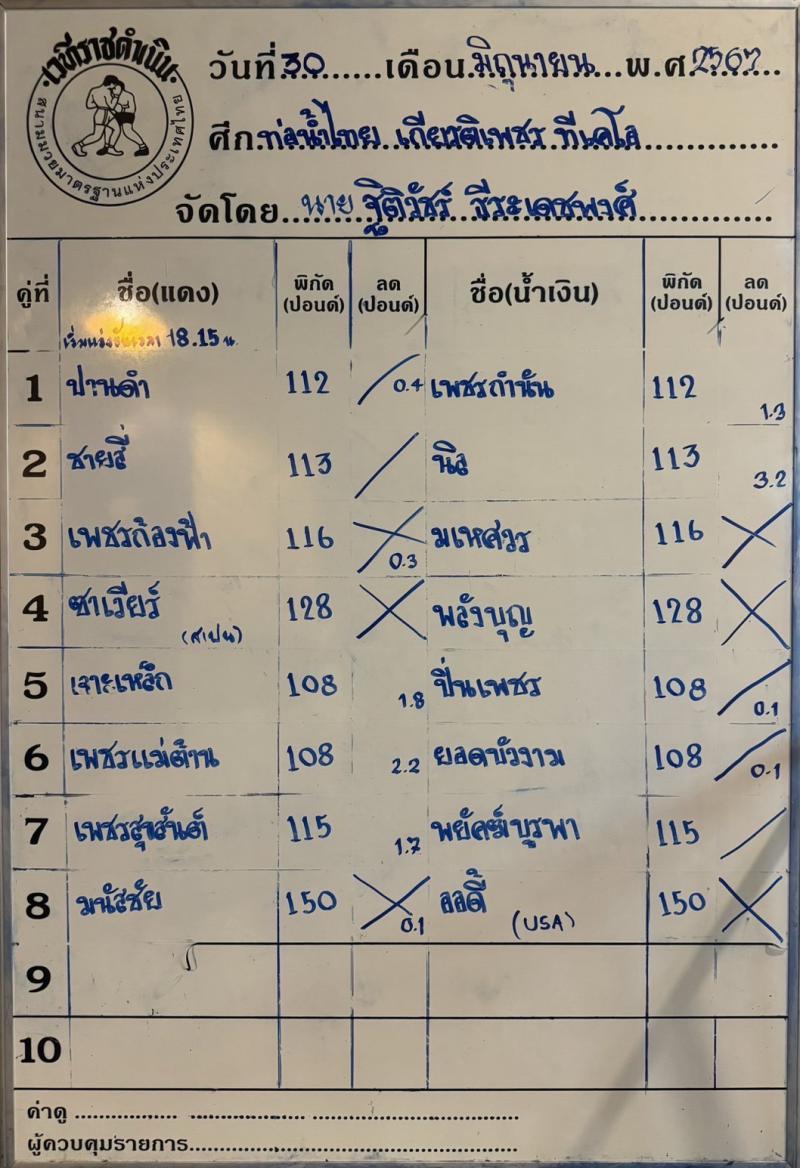 เวทีราชดำเนิน
สนามมวยมาตรฐานแห่งประเทศไทย
วันที่ 30 ......เดือน มิถุนายน ...พ.ศ. 2567
ศึก ท่อน้ำไทย เกียรติเพชร ทีเคโอ
จัดโดย...นาย ฐิติวัชร์ ธีระเดชพงศ์
คู่ที่ ชื่อ(แดง) พิกัด (ปอนด์) ลด (ปอนด์) ชื่อ(น้ำเงิน) พิกัด (ปอนด์) ลด (ปอนด์)
18.15 น.
1 ปานดำ 112 0.4 เพชรกำนัน 112 1.3
2 ชายสี่ 113 นิล 113 3.2
3 เพชรก้องฟ้า 116 0.3 มเหศวร 116
4 ซาเวียร์ (สเปน) 128 พลังบุญ 128
5 เจาะเหล็ก 108 1.8 ปิ่นเพชร 108 0.1
6 เพชรแม่ต้าน 108 2.2 ยอดบัวงาม 108 0.1
7 115 1.7 พยัคฆ์บูรพา 115
8 มนัสชัย 150 0.1 ออดี้ (USA) 150
9
10
ค่าดู ................. ................... ..................................
ผู้ควบคุมรายการ.......................................................